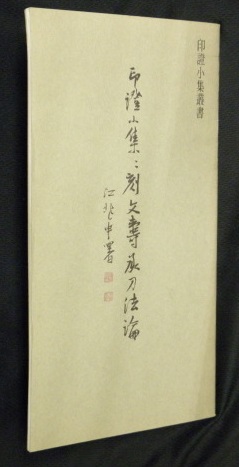 印證小集叢書
印證小集二刻文壽承刀法論
江兆申署